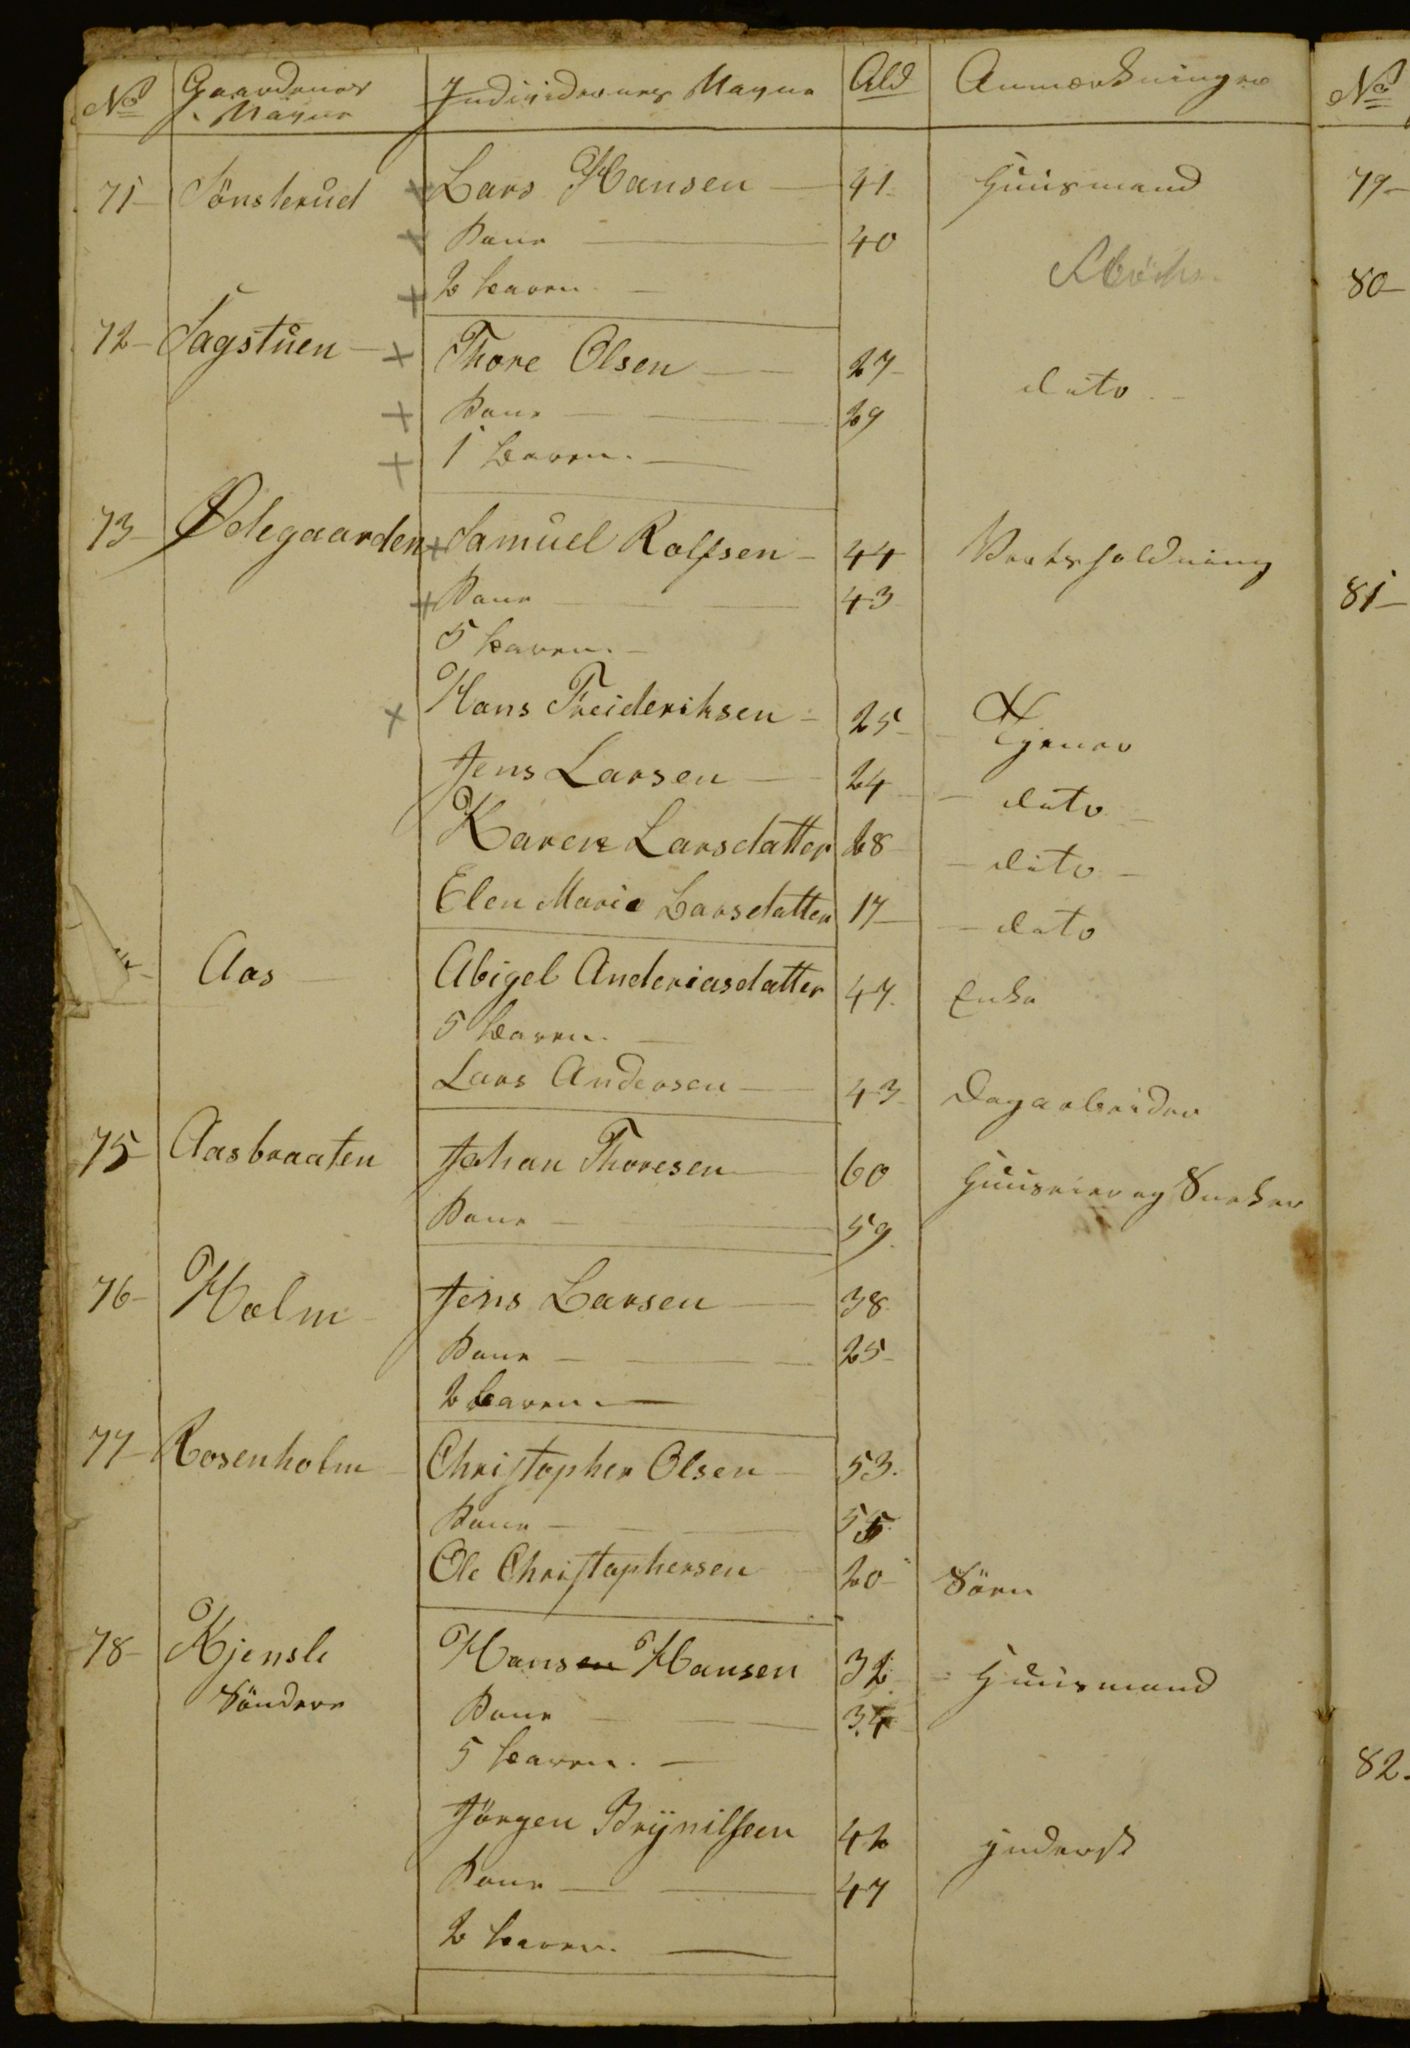 No Gaardenes Navne Individernes Navne Ald Anmærkninger No
71 Tønsterud Lars Hansen 41 Huusmand 79
Kone 40
2 børn. 80
72 Sagstuen Thore Olsen 27 dito
Kone 29
1 børn.
73 Ødegaarden Samuel Rolfsen 44 Vertsholdning
Kone 43 81
5 børn.
Hans Freideriksen 25 Tjener
Jens Larsen 24 dito
Karen Larsdatter 28 dito
Elen Marie Larsdatter 17 dito
Aas Abigel Anderiasdatter 47. Enke
5 børn.
Lars Andersen 43 Dagarbeider
75 Aasbraaten Johan Thoresen 60 Huuseier og Sneker
Kone 59.
76 Holm Jens Larsen 38
Kone 25
2 børn.
77 Rosenholm Christopher Olsen 53.
Kone 55
Ole Christophersen 20 Sørn
78 Kjensli Hansen Hansen 32 Huusmand
Søndere Kone 34
5 børn. 82.
Jörgen Brÿnilsen 42 Inderst
Kone 47
2 børn.